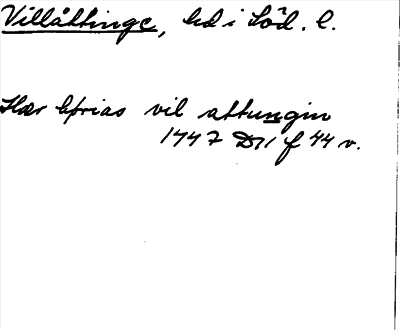 Villåttinge, hd i Söd. l.
Hær byrias vil attungin
1447 D11 f 44 v.